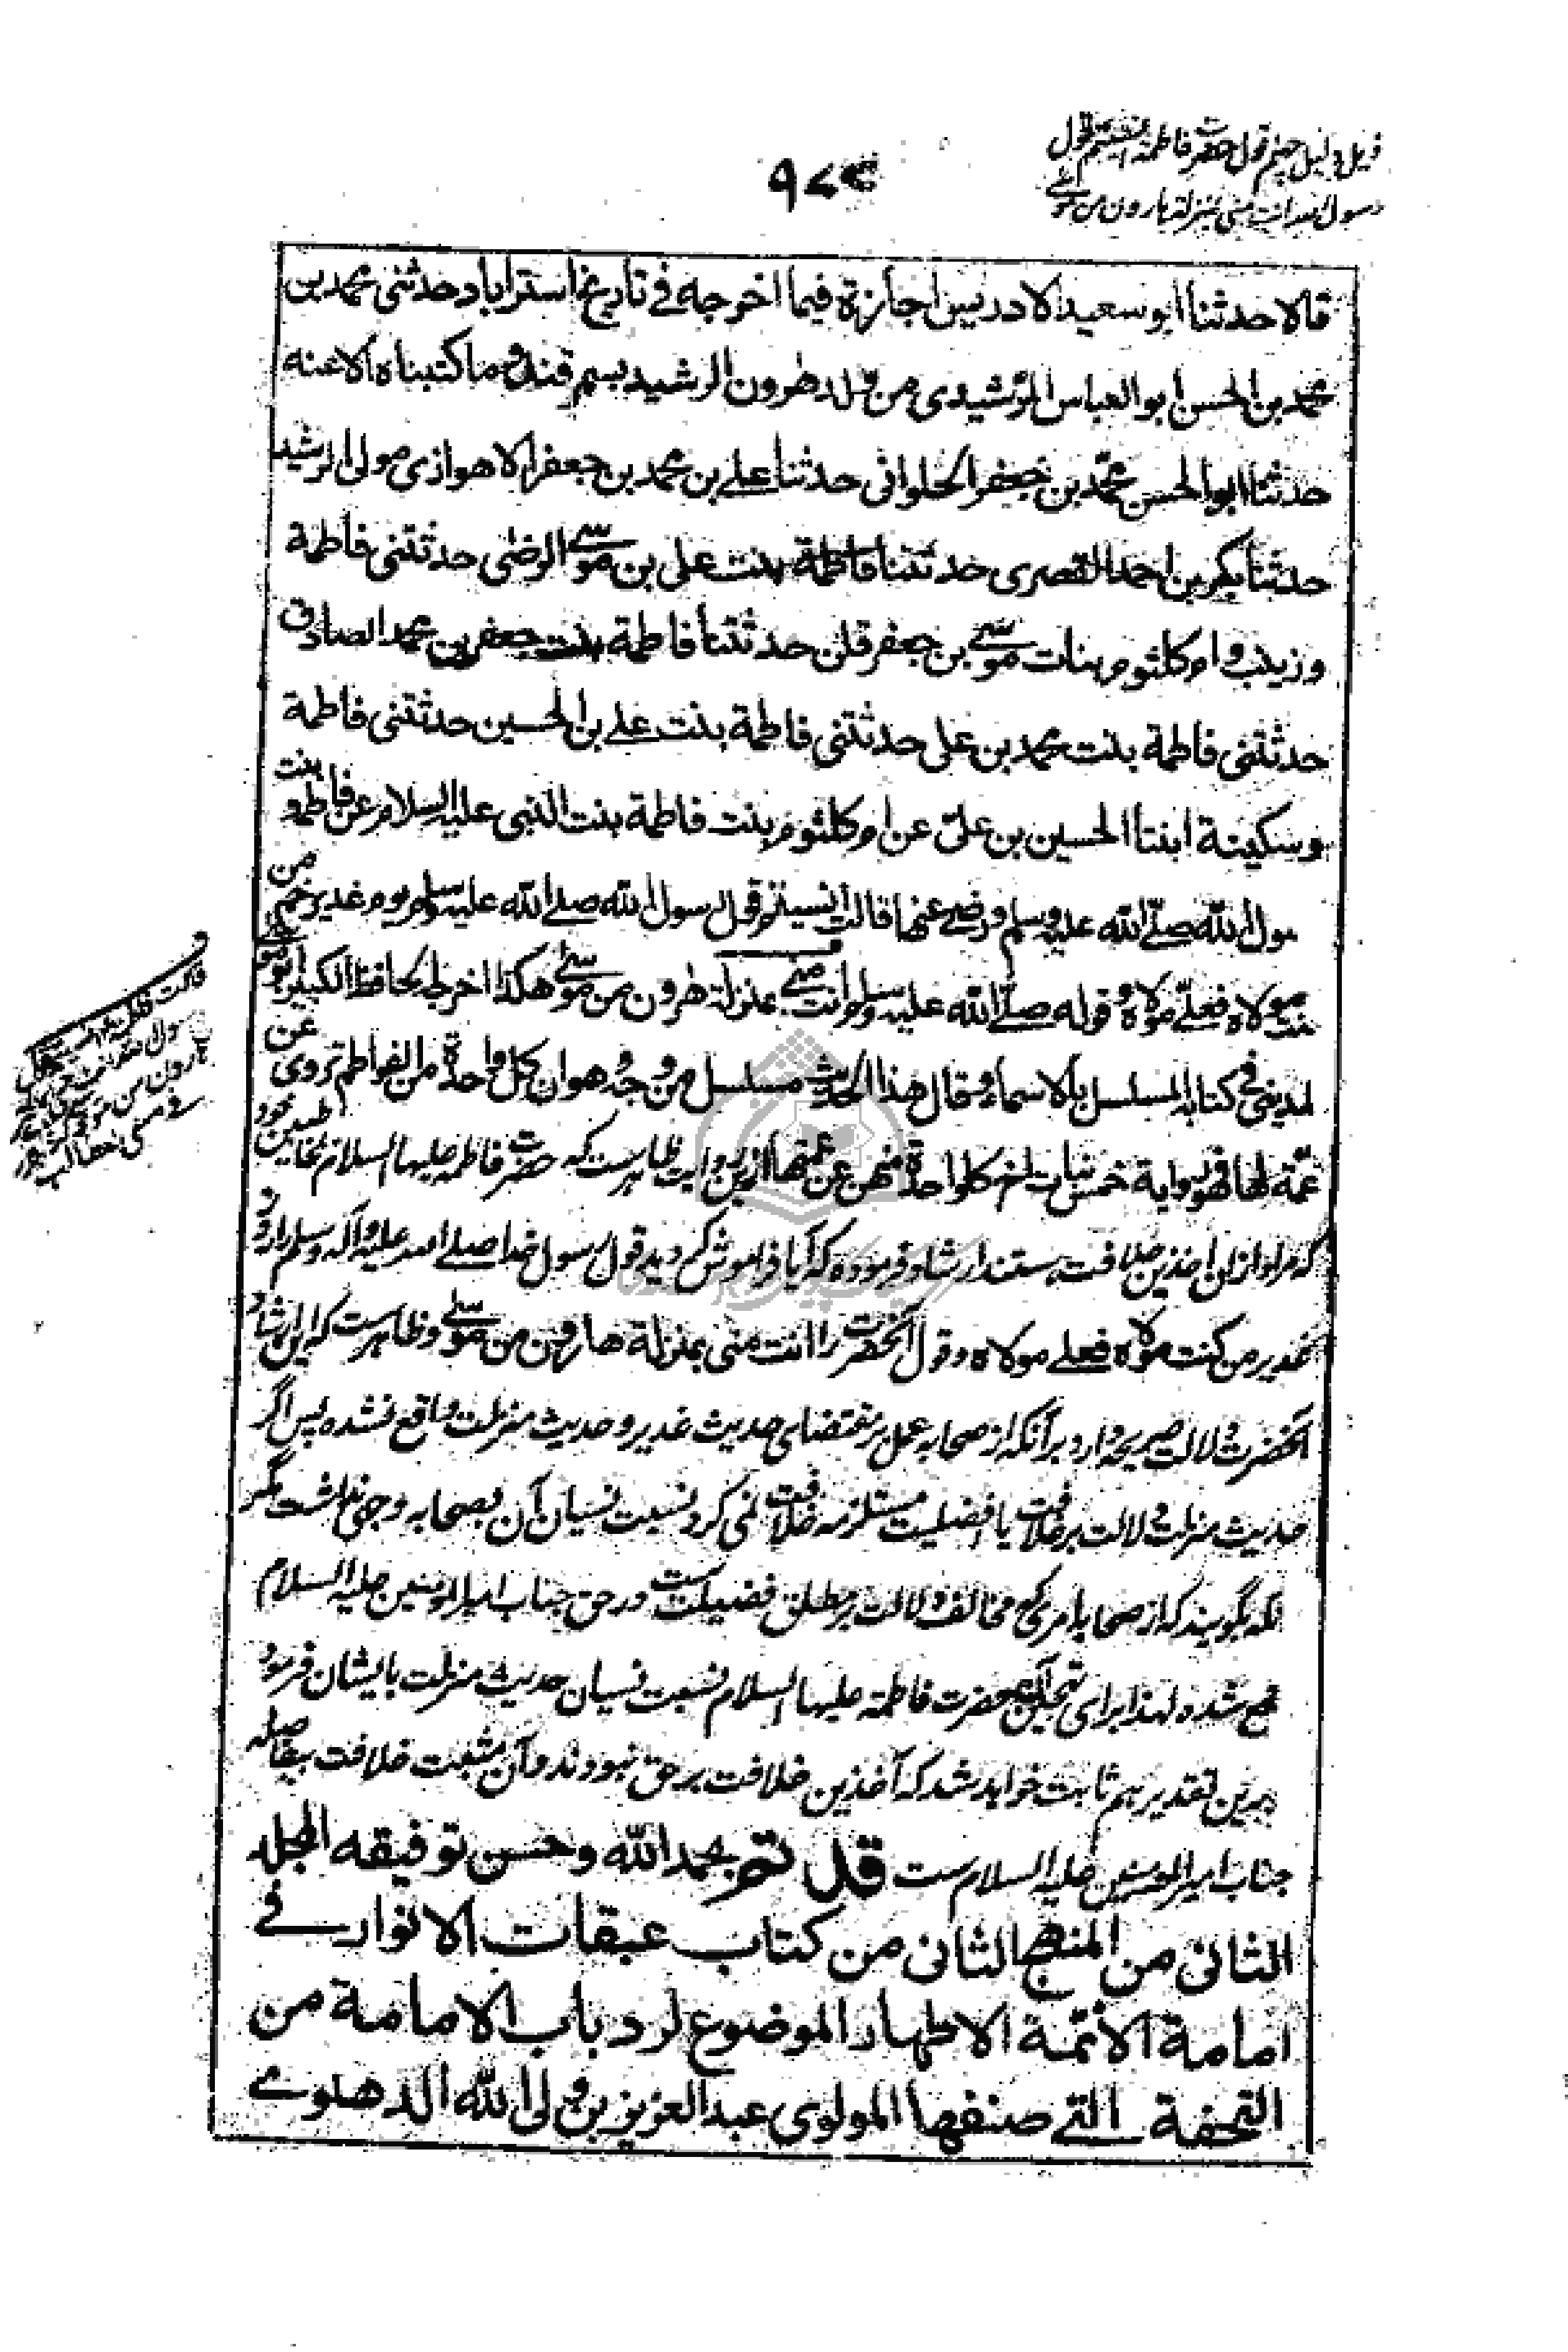 ذیل دلیل چهلم قول حضرت فاطمه انسیتم قول
رسول الله انت منی بمنزلة هارون من موسی
قالا حدثنا ابو سعيد الادريسي اجازة فيما اخرجه في تاريخ استراباد حدثنى محمد بن
محمد بن الحسن ابو العباس الرشيدى من ولد هرون الرشيد بسمرقند وما كتبناه الا عنه
حدثنا ابو الحسن محمد بن جعفر الحلوانى حدثنا على بن محمد بن جعفر الاهوازى مولى الرشيد
حدثنا بكر بن احمد القصرى حدثتنا فاطمة بنت على بن موسى الرضى حدثتنى فاطمة
وزينب وام كلثوم بنات موسى بن جعفر قلن حدثتنا فاطمة بنت جعفر بن محمد الصادق
حدثتنى فاطمة بنت محمد بن على حدثتنى فاطمة بنت على بن الحسين حدثتنى فاطمة
وسكينة ابنتا الحسين بن على عن ام كلثوم بنت فاطمة بنت النبى عليه السلام عن فاطمة بنت
سول الله صلى الله عليه وسلم ورضى عنها قالت انسيتم قول رسول الله صلى الله عليه وسلم يوم غدير خم من
مولاه فعلى مولاه وقوله صلى الله عليه وسلم انت منى بمنزلة هرون من موسى هكذا اخرجه الحافظ الكبير ابو موسى
لمدينى فى كتابه المسلسل بالاسماء وقال هذا الحديث مسلسل من وجه وهو ان كل واحدة من الفواطم تروى عن
عمة لها فهو رواية خمس بنات اخ كل واحدة منهن عن عمتها ازین روایت ظاهرست که حضرت فاطمه علیها السلام مخاطبین خود
که مراد ازان آخذین خلافت هستند ارشاد فرموده که آیا فراموش کردید قول رسول خدا صلی الله علیه وآله وسلم را روز
غدیر من كنت مولاه فعلى مولاه وقول آنحضرت را انت منى بمنزلة هارون من موسى وظاهرست که این ارشاد
آنحضرت دلالت صریحه دارد برآنکه از صحابه عمل بر مقتضای حدیث غدیر و حدیث منزلت واقع نشده پس اگر
حدیث منزلت دلالت بر خلافت یا افضلیت مستلزمه خلافت نمی کرد نسبت نسیان آن بصحابه وجهی نداشت مگر
نکه بگویند که از صحابه امری که مخالف دلالت بر مطلق فضیلت ست در حق جناب امیر المومنین علیه السلام
قع شده ولهذا برای حضرت فاطمه علیها السلام نسبت نسیان حدیث منزلت بایشان فرمود
برین تقدیر هم ثابت خواهد شد که آخذین خلافت بر حق نبودند وآن مثبت خلافت بیفاصله
جناب امیر المومنین علیه السلام ست قد تم بحمد الله وحسن توفيقه المجلد
الثانى من المنهج الثانى من كتاب عبقات الانوار فى
امامة الائمة الاطهار الموضوع لرد باب الامامة من
التحفة التى صنفها المولوى عبد العزيز بن ولى الله الدهلوى